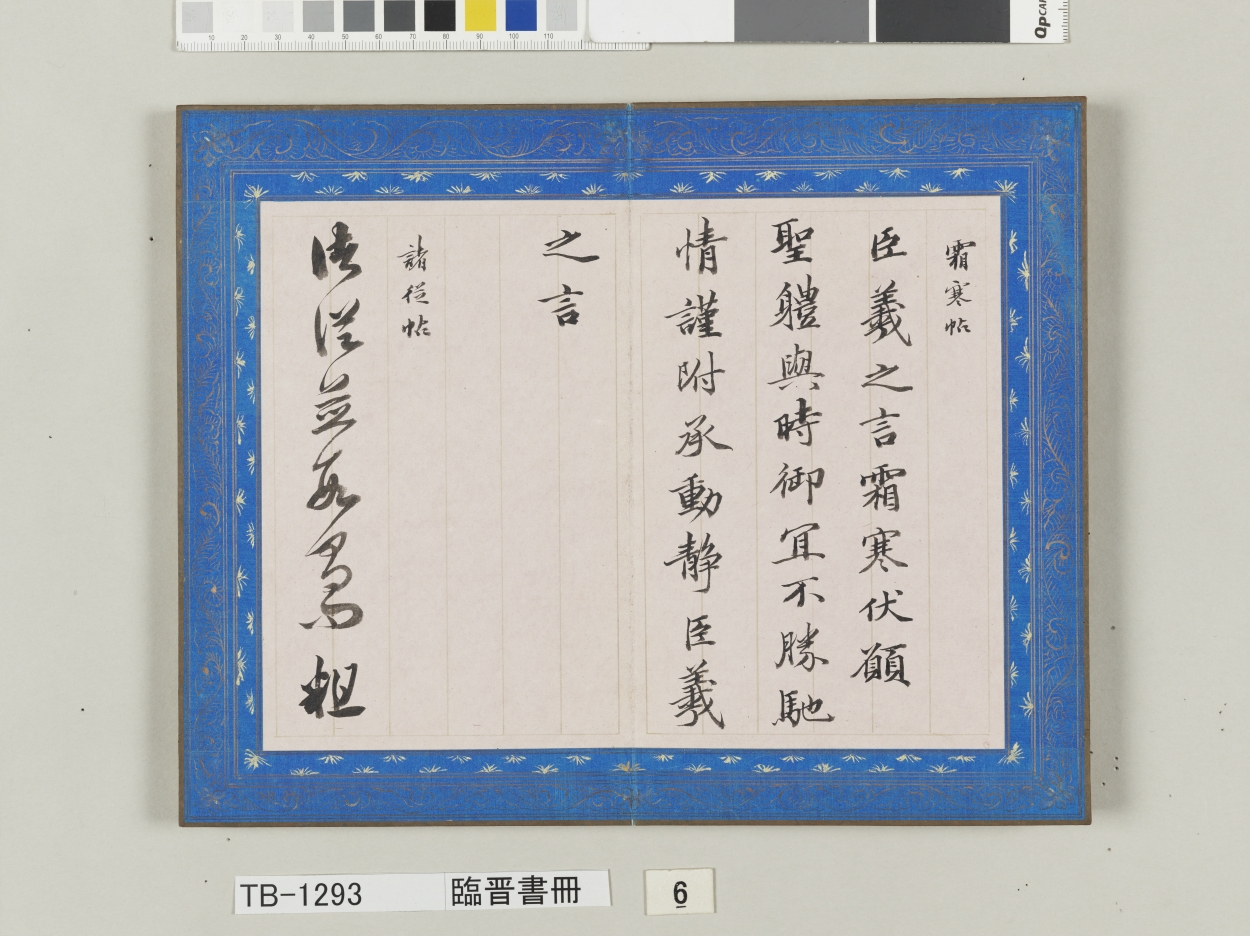 霜寒帖
臣羲之言霜寒伏願
聖體與時御宜不勝馳
情謹附承動静臣羲
之言
諸從帖
諸從並數有問粗
TB-1293
臨晋書冊
6
10 20 30 40 50 60 70 80 90 100 110
QPCARD